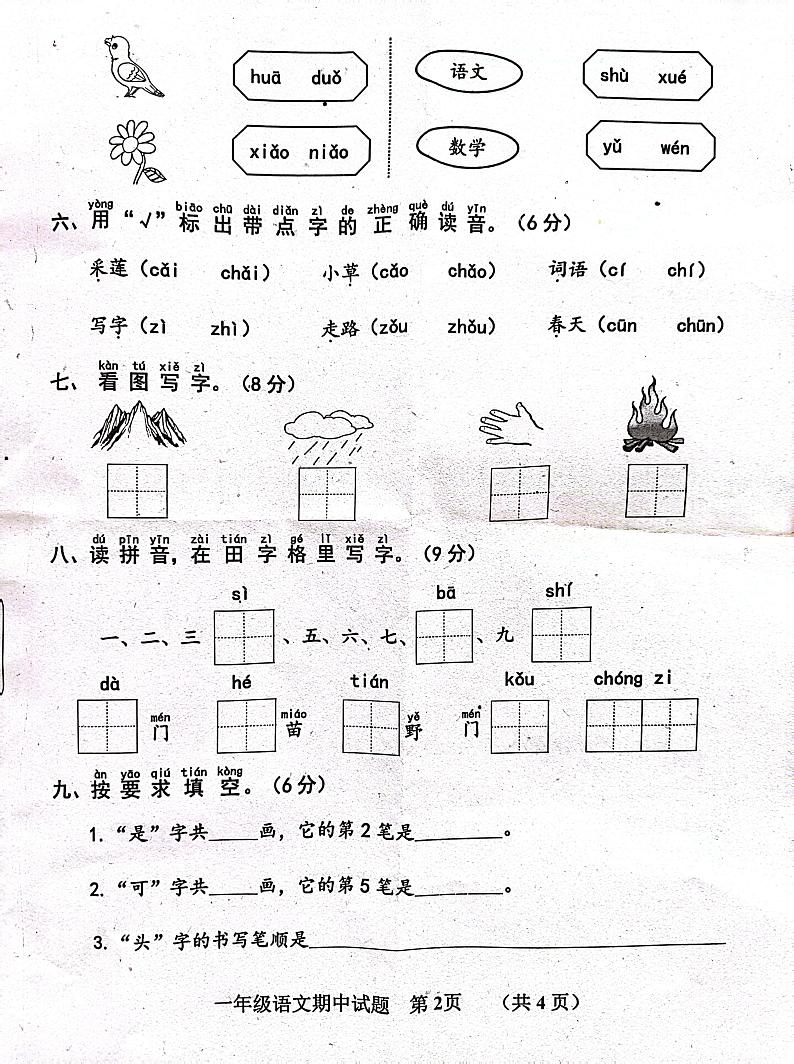 huā duǒ 语文 shù xué
xiǎo niǎo 数学 yǔ wén
yòng biāo chū dài diǎn zì de zhèng què dú yīn
六、用“√”标出带点字的正确读音。（6分）
采莲（cǎi chǎi） 小草（cǎo chǎo） 词语（cí chí）
写字（zì zhì） 走路（zǒu zhǒu） 春天（cūn chūn）
kàn tú xiě zì
七、看图写字。（8分）
dú pīn yīn zài tián zì gé lǐ xiě zì
八、读拼音，在田字格里写字。（9分）
sì bā shí
一、二、三 、五、六、七、 、九
dà hé tián kǒu chóng zi
mén miáo yě mén
门 苗 野 门
àn yāo qiú tián kòng
九、按要求填空。（6分）
1.“是”字共_____画，它的第2笔是_________。
2.“可”字共_____画，它的第5笔是_________。
3.“头”字的书写笔顺是___________________________
一年级语文期中试题 第2页 （共4页）